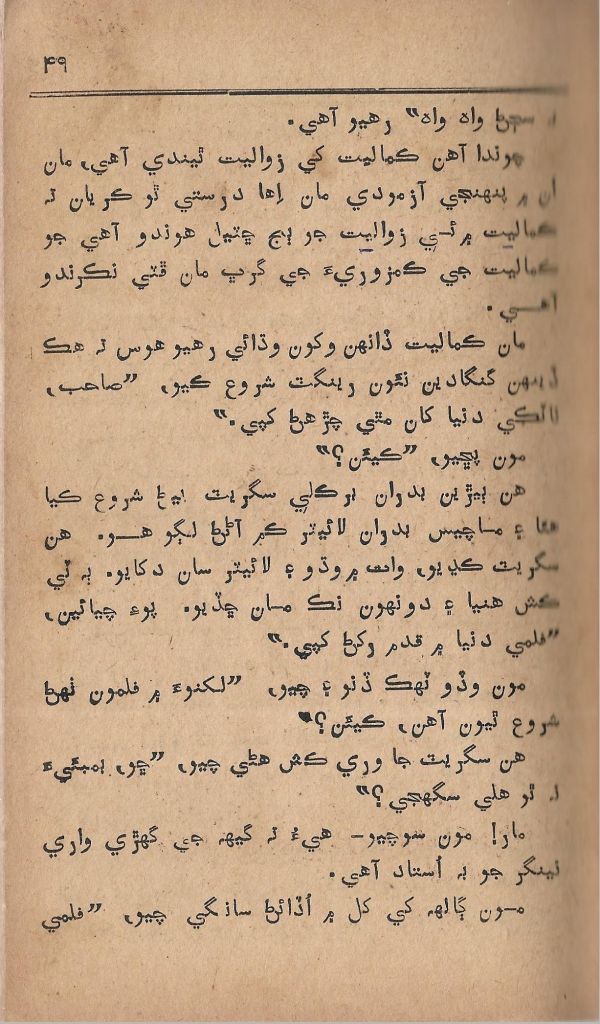 ۴۹
سڄڻ واه واه” رهيو آهي.
چوندا آهن ڪماليت کي زواليت ٿيندي آهي، مان
ان ۾ پنهنجي آزمودي مان اِها درستي ٿو ڪريان تہ
ڪماليت ۾ ئي زواليت جو ٻج ڇٽيل هوندو آهي جو
ڪماليت جي ڪمزوريءَ جي گرڀ مان ڦٽي نڪرندو
آهي.
مان ڪماليت ڏانهن وکون وڌائي رهيو هوس تہ هڪ
ڏينهن گنگادين نئون رينگٽ شروع ڪيو، ”صاحب،
دنيا کان مٿي چڙهڻ کپي.“
مون پڇيو، ”ڪيئن؟“
هن ٻيڙين بدران برڪلي سگريٽ پيئڻ شروع ڪيا
هئا ۽ ماچيس بدران لائيٽر ڪم آڻڻ لڳو هو. هن
سگريٽ ڪڍيو، وات ۾ وڌو ۽ لائيٽر سان دکايو. ٻہ ٽي
ڪش هنيا ۽ دونهون نڪ مان ڇڏيو. پوءِ چيائين،
”فلمي دنيا ۾ قدم رکڻ کپي.“
مون وڏو ٽهڪ ڏنو ۽ چيو، ”لکنوءَ ۾ فلمون ٺهڻ
شروع ٿيون آهن، ڪيئن؟“
هن سگريٽ جا وري ڪش هڻي چيو، ”ڇو، بمبئيءَ
نہ ٿو هلي سگهجي؟“
مار! مون سوچيو– هيءُ تہ گيهہ جي گهڙي واري
نينگر جو بہ اُستاد آهي.
مون ڳالهہ کي کل ۾ اُڏائڻ سانگي چيو، ”فلمي